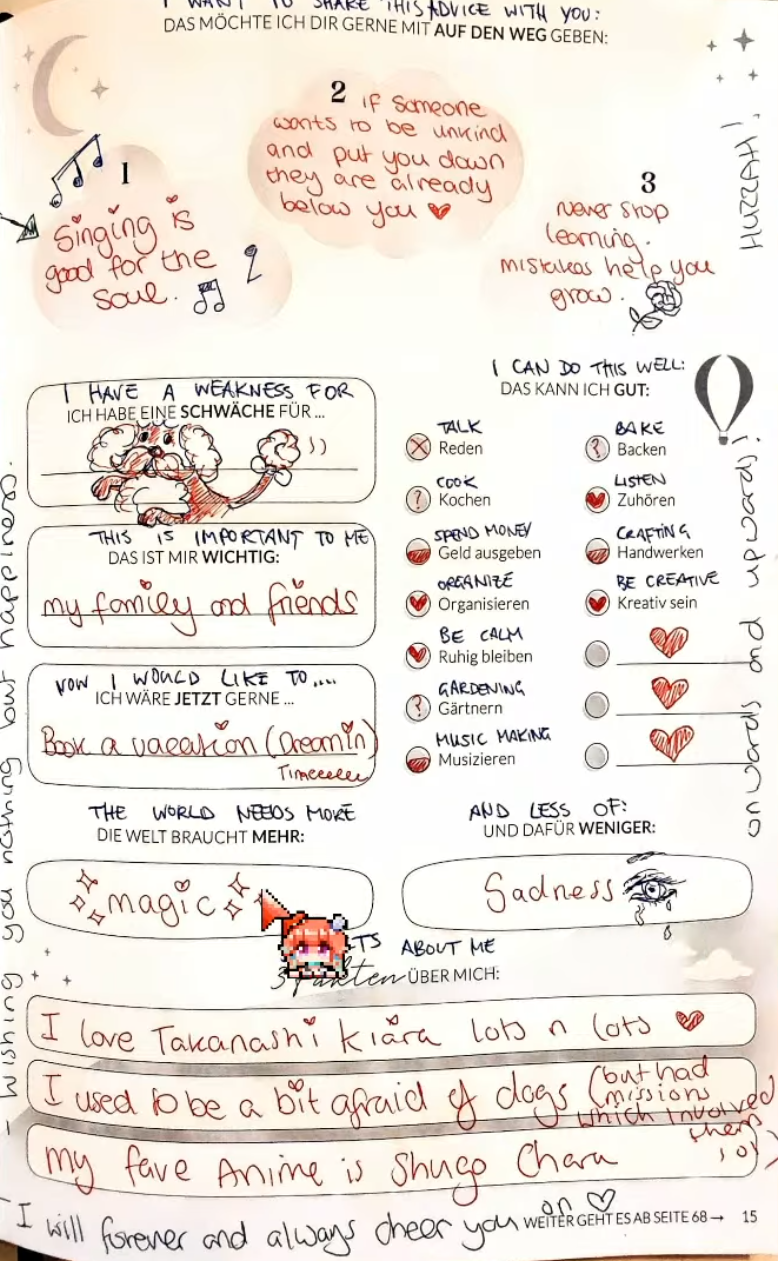 I WANT TO SHARE THIS ADVICE WITH YOU:
DAS MÖCHTE ICH DIR GERNE MIT AUF DEN WEG GEBEN:
1
Singing is
good for the
soul.
2
if someone
wants to be unkind
and put you down
they are already
below you
3
never stop
learning.
mistakes help you
grow.
HUZZAH!
I HAVE A WEAKNESS FOR
ICH HABE EINE SCHWÄCHE FÜR ...
THIS IS IMPORTANT TO ME
DAS IST MIR WICHTIG:
my family and friends
NOW I WOULD LIKE TO....
ICH WÄRE JETZT GERNE ...
Book a vacation (Dreamin)
Timeeeeee
I CAN DO THIS WELL:
DAS KANN ICH GUT:
TALK
Reden
COOK
? Kochen
SPEND MONEY
Geld ausgeben
ORGANIZE
Organisieren
BE CALM
Ruhig bleiben
GARDENING
? Gärtnern
MUSIC MAKING
Musizieren
BAKE
? Backen
LISTEN
Zuhören
CRAFTING
Handwerken
BE CREATIVE
Kreativ sein
THE WORLD NEEDS MORE
DIE WELT BRAUCHT MEHR:
magic
AND LESS OF:
UND DAFÜR WENIGER:
Sadness
ABOUT ME
3 Fakten ÜBER MICH:
I love Takanashi Kiara lots n lots
I used to be a bit afraid of dogs (but had
missions
which involved
them
my fave Anime is Shugo Chara
- wishing you nothing but happiness.
onwards and upwards!
I will forever and always cheer you on
WEITER GEHT ES AB SEITE 68→ 15